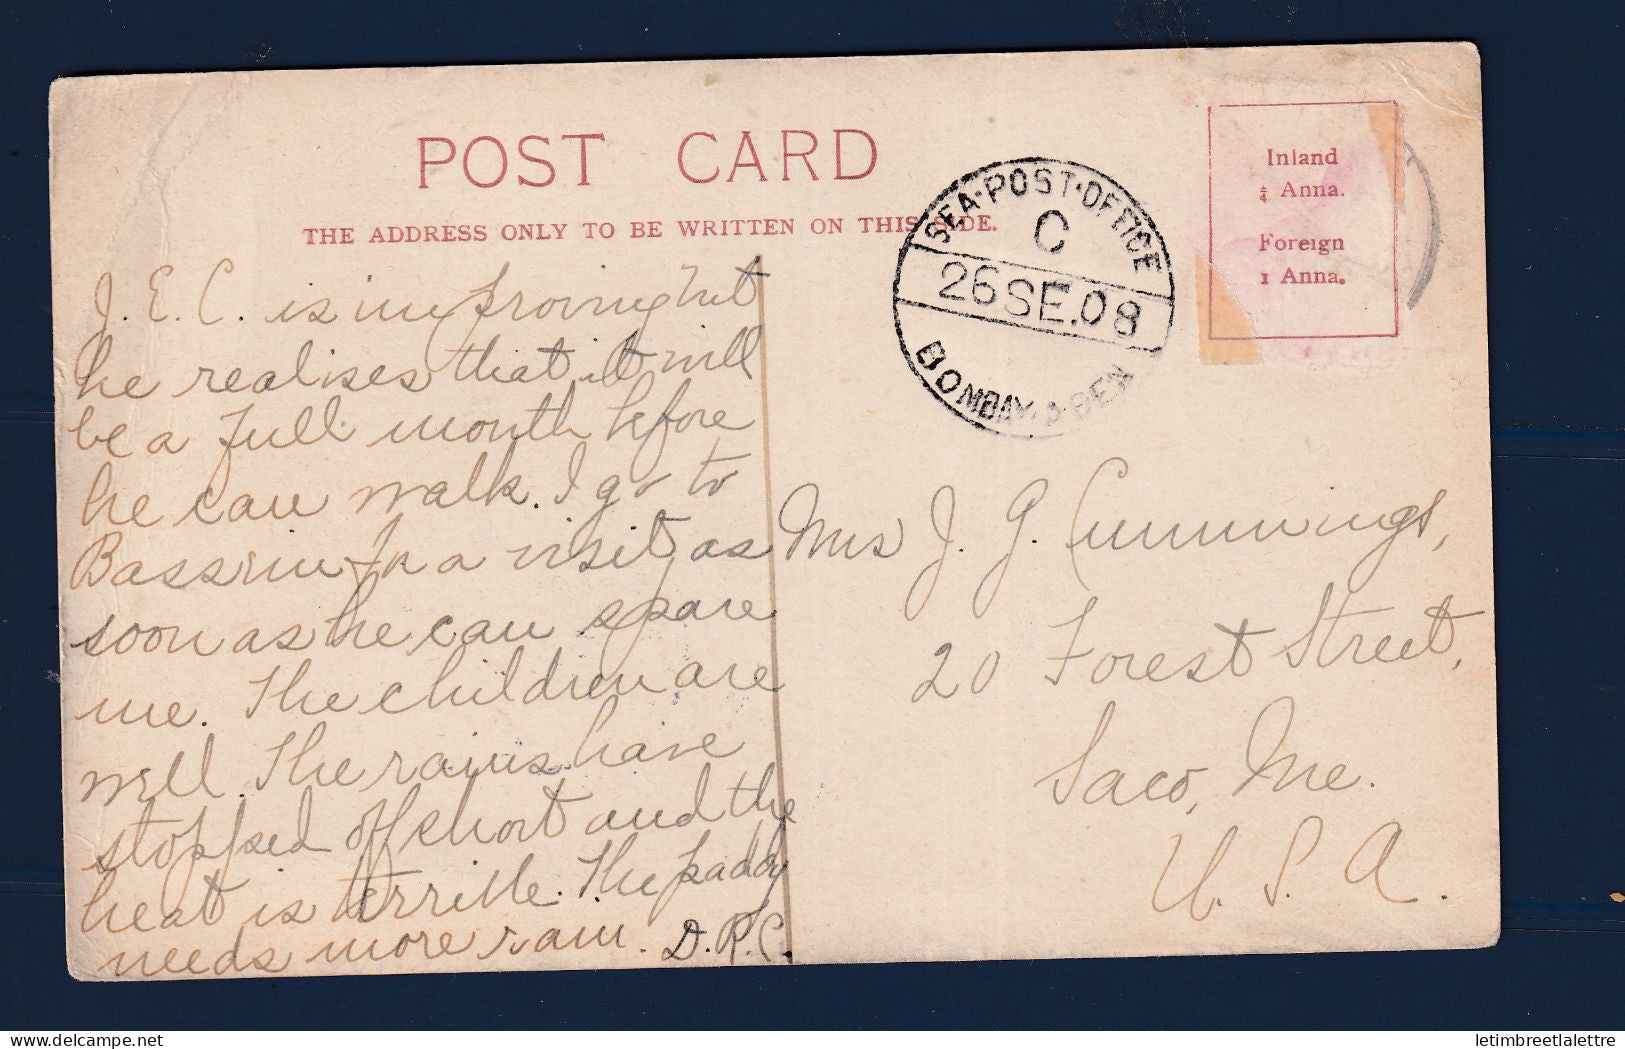 POST CARD
THE ADDRESS ONLY TO BE WRITTEN ON THIS SIDE.
Inland
¼ Anna.
Foreign
1 Anna.
SEA·POST·OFFICE
C
26 SE.08
BOMBAY-ADEN
J. E. C. is improving but
he realises that it will
be a full month before
he can walk. I go to
Bassein for a visit as
soon as he can spare
me. The children are
well. The rains have
stopped off short and the
heat is terrible. The paddy
needs more rain. D.R.C.
Mrs J. G. Cummings,
20 Forest Street,
Saco, Me.
U. S. A.
delcampe.net
letimbreetlalettre